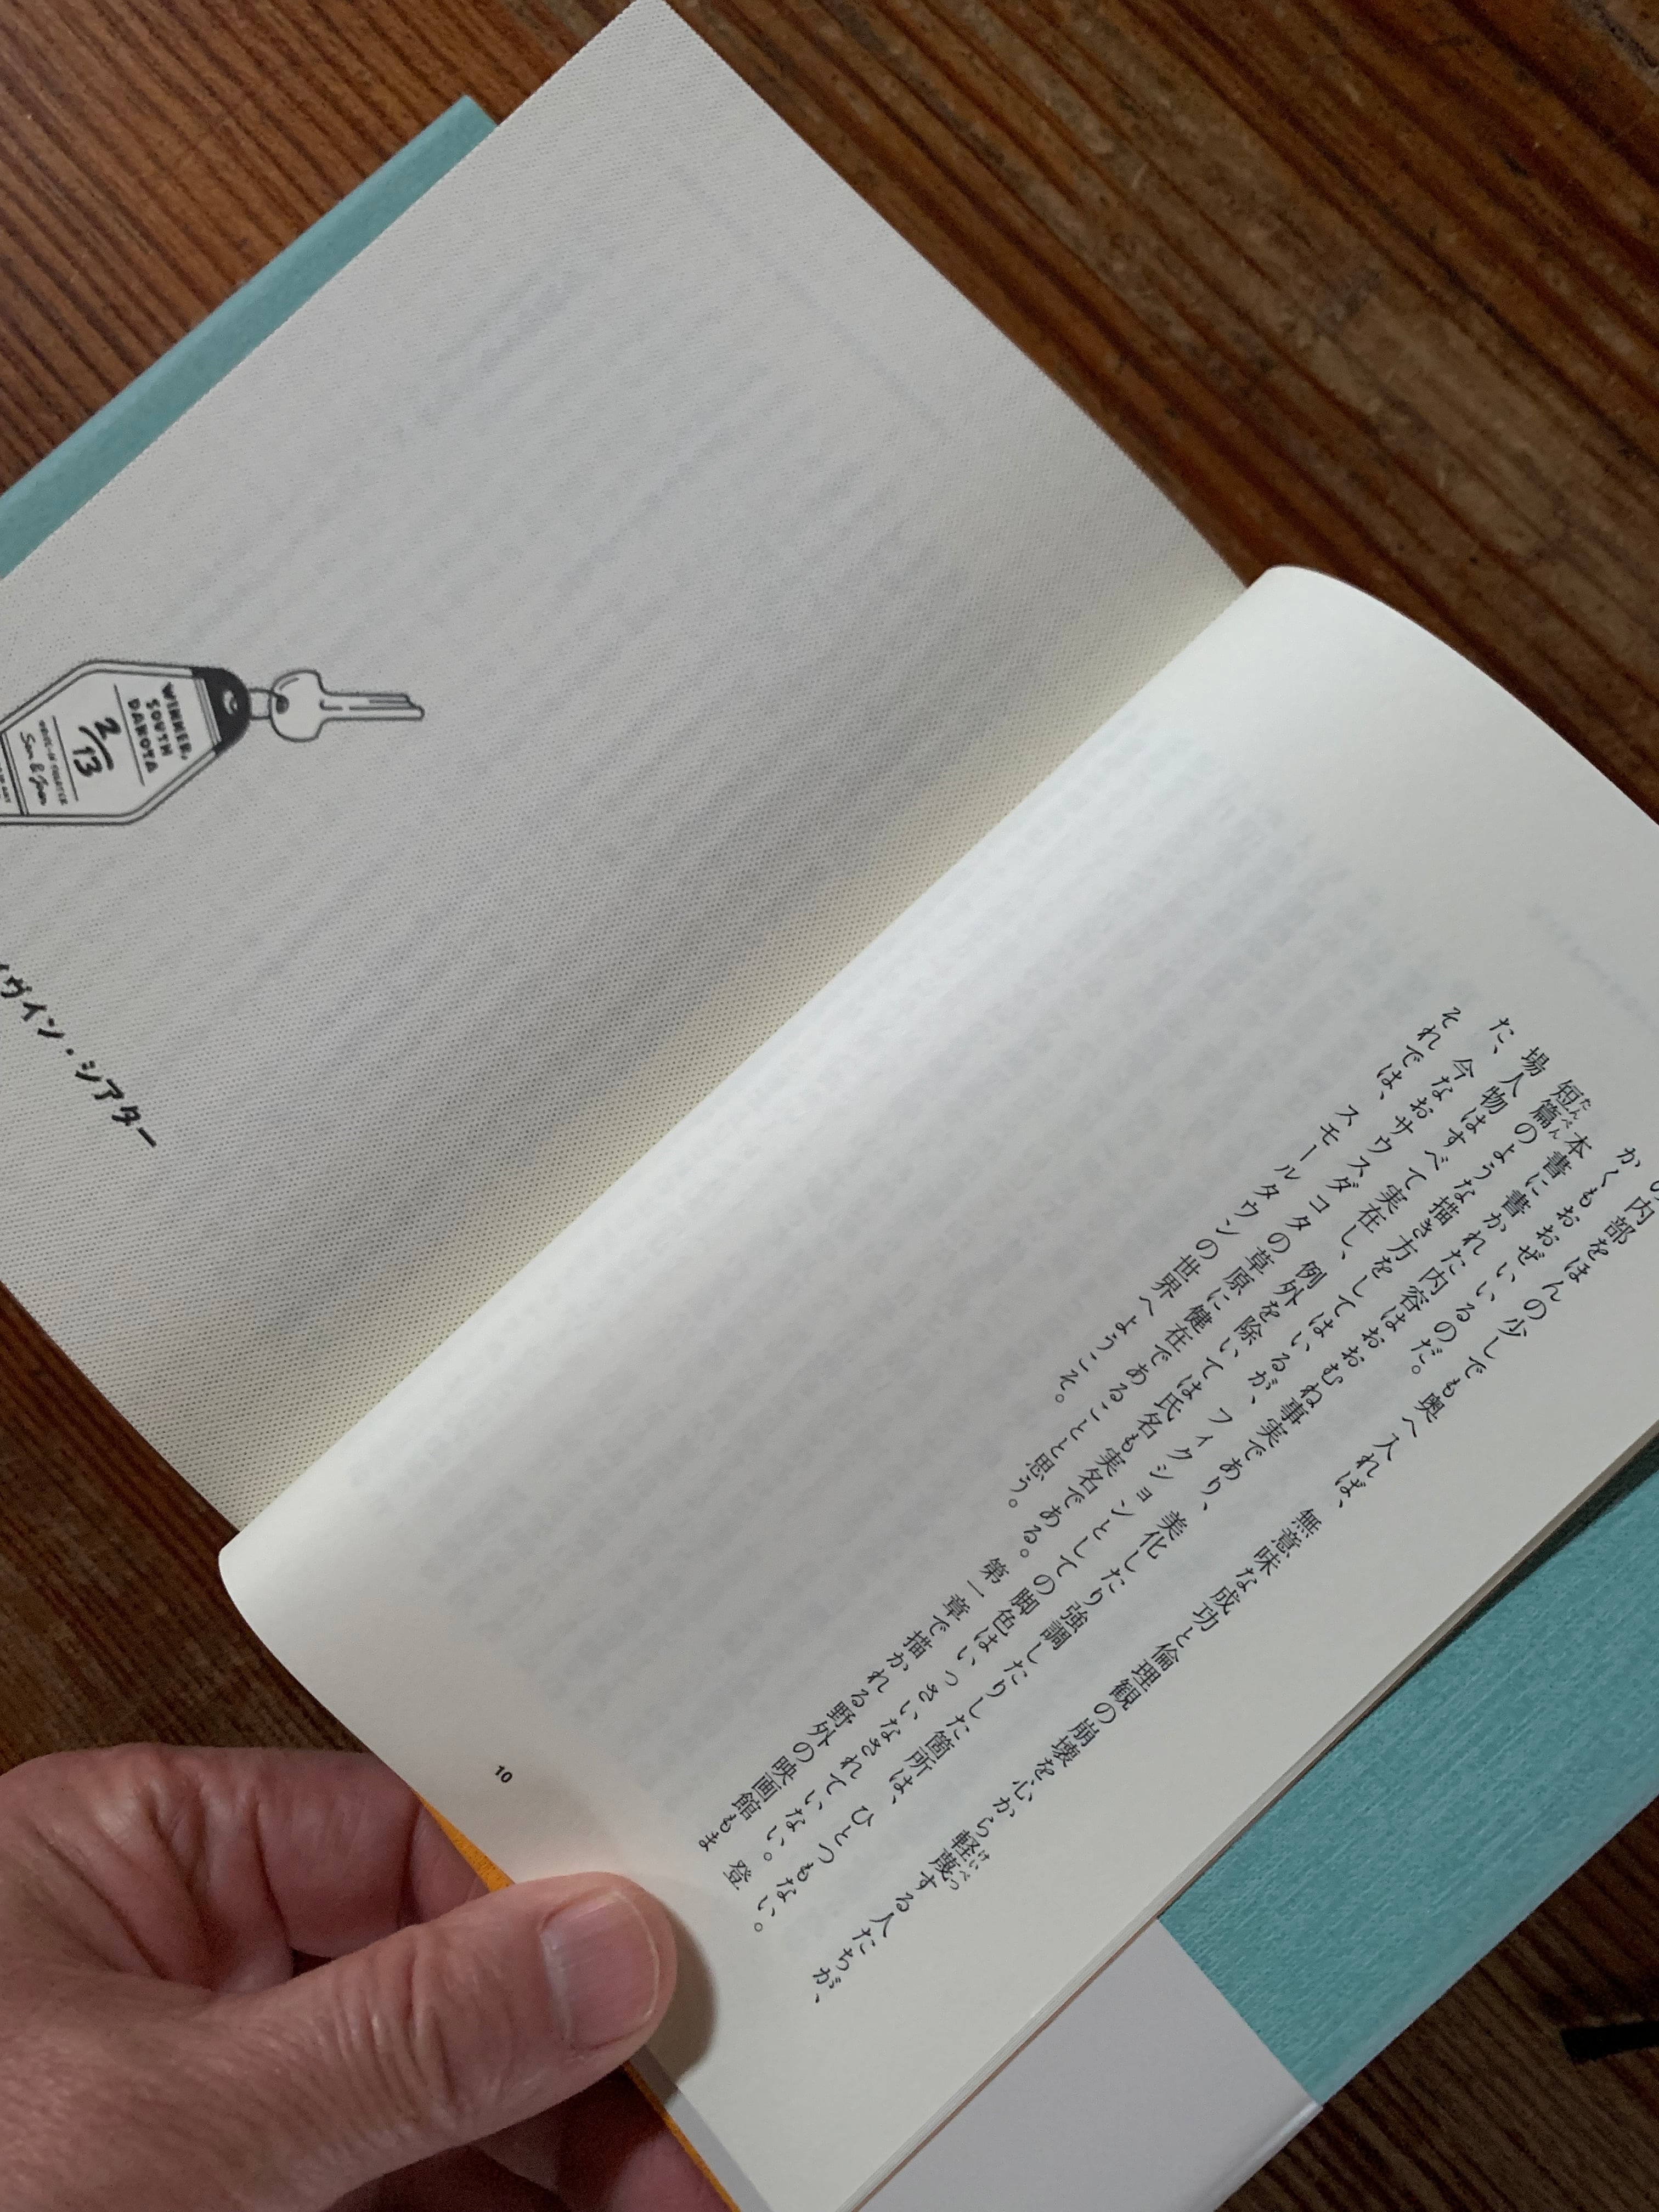 の内部をほんの少しでも奥へ入れば、無意味な成功と倫理観の崩壊を心から軽蔑する人たちが、
かくもおおぜいいるのだ。
本書に書かれた内容はおおむね事実であり、美化したり強調したりした箇所は、ひとつもない。
短篇のような描き方をしてはいるが、フィクションとしての脚色はいっさいなされていない。登
場人物はすべて実在し、例外を除いては氏名も実名である。第一章で描かれる野外の映画館もま
た、今なおサウスダコタの草原に健在であることと思う。
それでは、スモールタウンの世界へようこそ。
10
WINNER,
SOUTH
DAKOTA
2/13
ヴイン・シアター